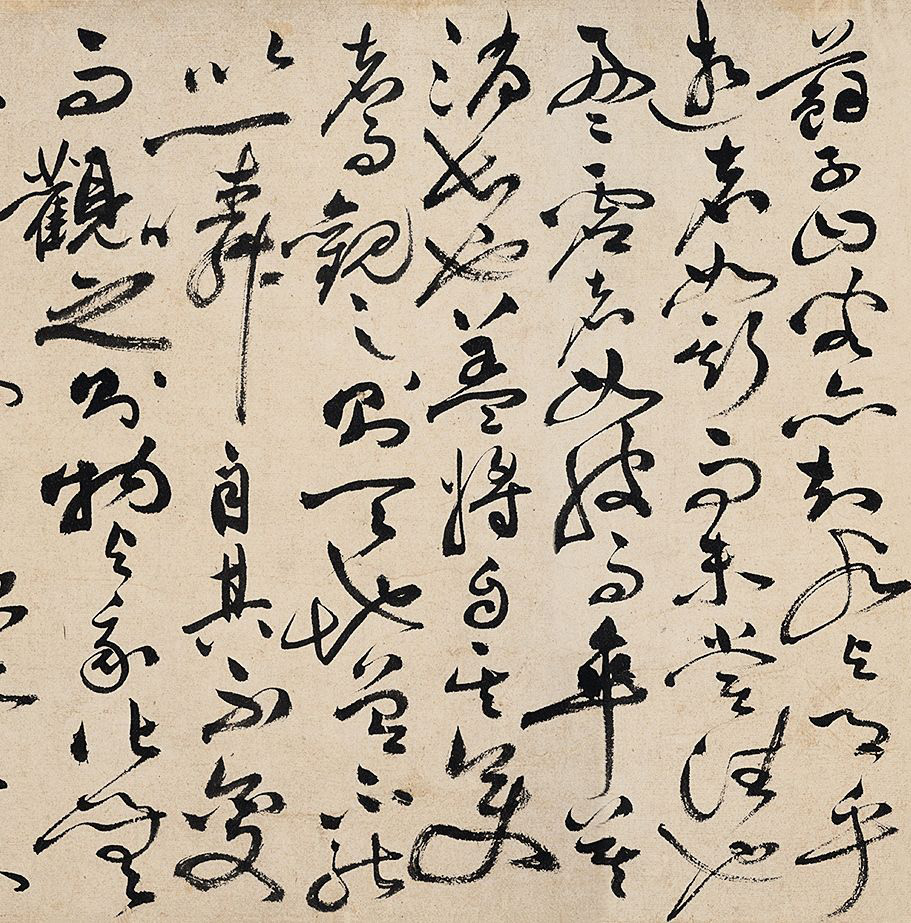 蘇子曰客亦知水與月乎
逝者如斯而未嘗往也
盈虛者如彼而卒莫
消長也蓋將自其變
者而觀之則天地曾不能
以一瞬自其不變
而觀之則物與我皆無